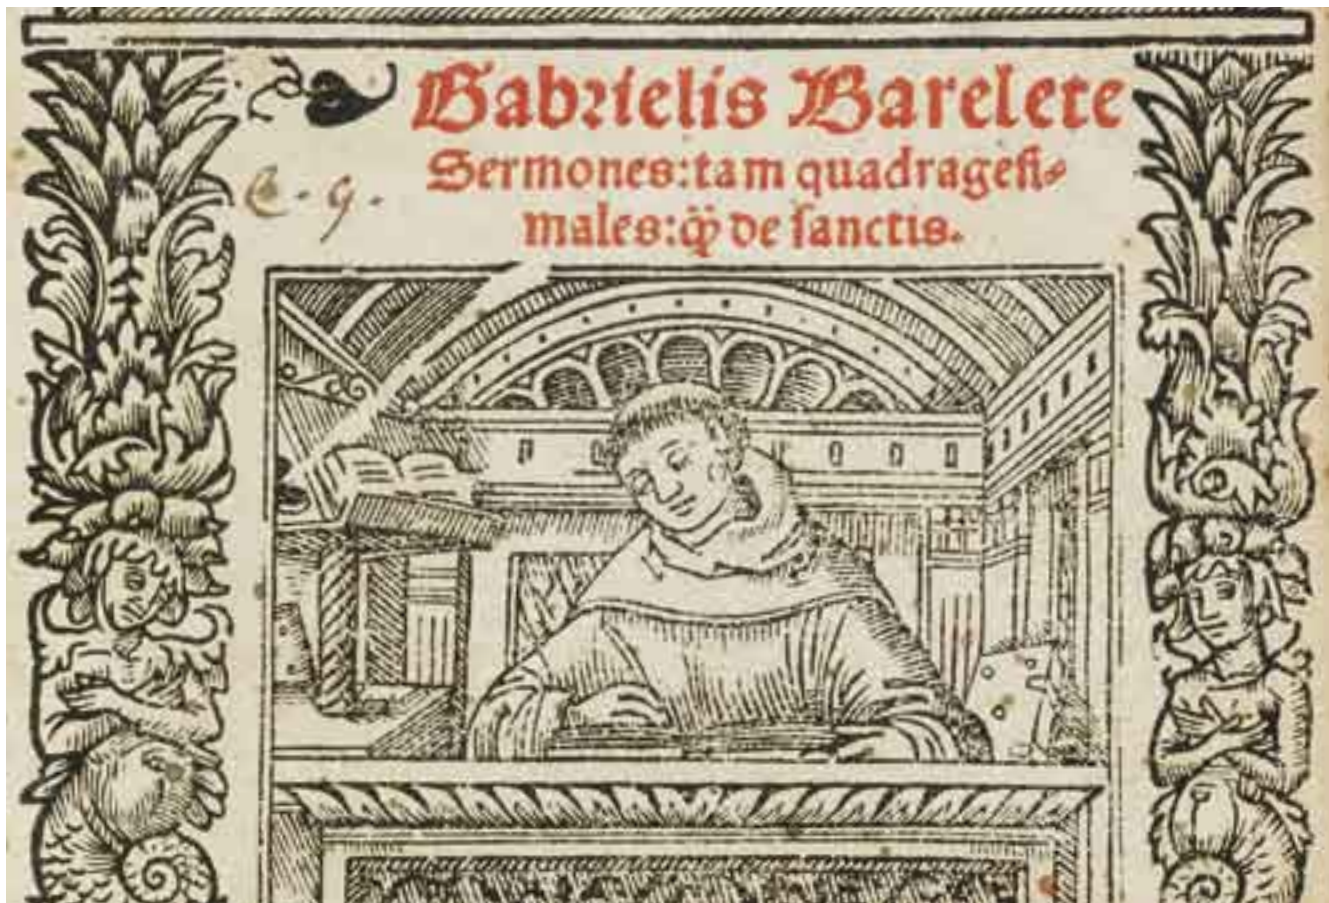 Gabrielis Barelete
Sermones:tam quadragesi⸗
males:q̃ꝫ de sanctis.
C. 9.